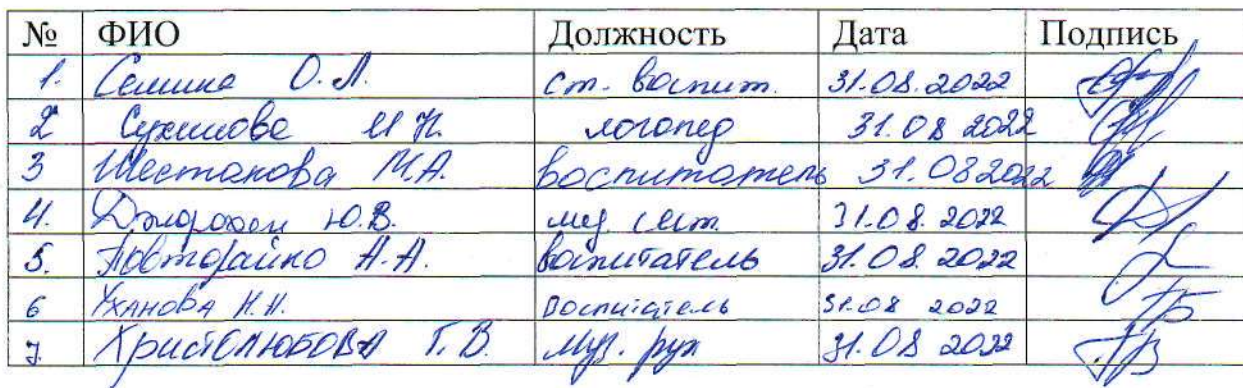 № ФИО Должность Дата Подпись
1. Семина О.Л. ст. воспит. 31.08.2022
2 И Н. логопед 31.08 2022
3 Шестакова М.А. воспитатель 31.082022
4. Ю.В. мед. сест. 31.08.2022
5. Повторайко А.А. воспитатель 31.08.2022
6 Уханова Н.Н. воспитатель 31.08 2022
7. Христолюбова Т.В. муз. рук 31.08 2022